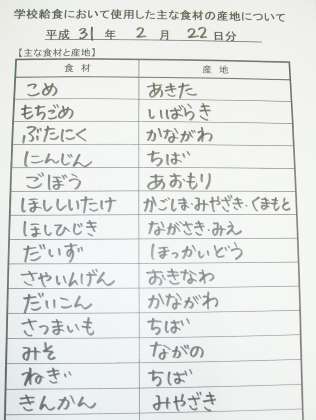 学校給食において使用した主な食材の産地について
平成 31 年 2 月 22 日分
【主な食材と産地】
食材 産地
こめ あきた
もちごめ いばらき
ぶたにく かながわ
にんじん ちば
ごぼう あおもり
ほししいたけ かごしま・みやざき・ぐまもと
ほしひじき ながさき・みえ
だいず ほっかいどう
さやいんげん おきなわ
だいこん かながわ
さつまいも ちば
みそ ながの
ねぎ ちば
きんかん みやざき